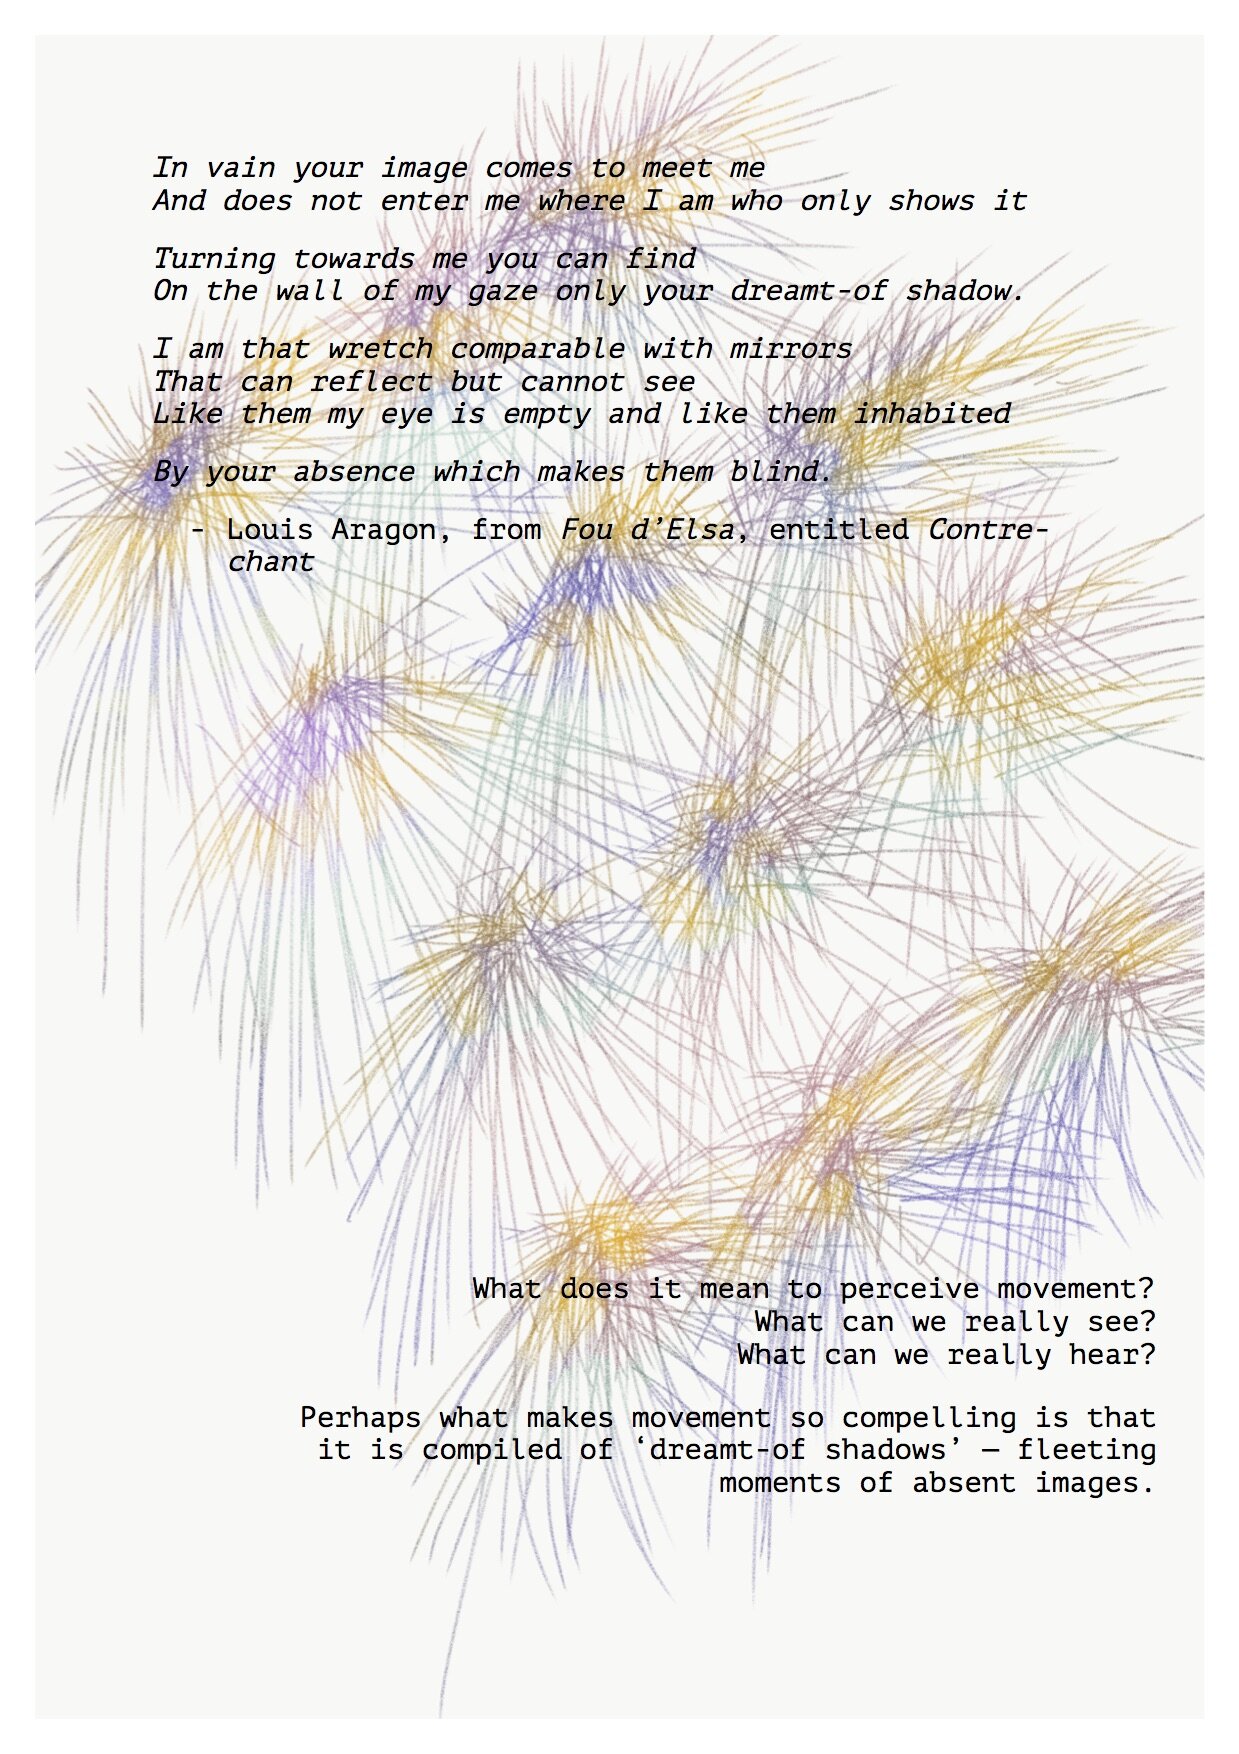 In vain your image comes to meet me
And does not enter me where I am who only shows it
Turning towards me you can find
On the wall of my gaze only your dreamt-of shadow.
I am that wretch comparable with mirrors
That can reflect but cannot see
Like them my eye is empty and like them inhabited
By your absence which makes them blind.
- Louis Aragon, from Fou d’Elsa, entitled Contre-
chant
What does it mean to perceive movement?
What can we really see?
What can we really hear?
Perhaps what makes movement so compelling is that
it is compiled of ‘dreamt-of shadows’ — fleeting
moments of absent images.